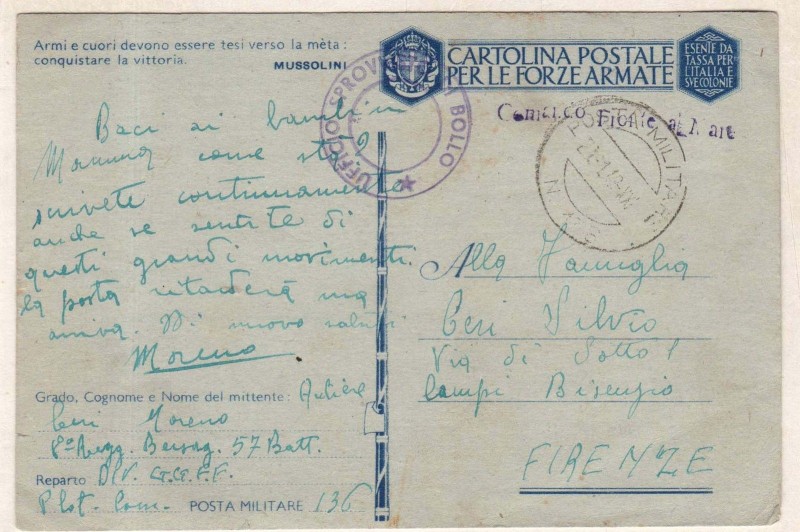 Armi e cuori devono essere tesi verso la mèta:
conquistare la vittoria.
MUSSOLINI
CARTOLINA POSTALE
PER LE FORZE ARMATE
ESENTE DA
TASSA PER
L'ITALIA E
SVE COLONIE
UFFICIO SPROVVISTO DI BOLLO
POSTA MILITARE
Baci ai bambini
Mamma come sta?
scrivete continuamente
anche se sentite di
questi grandi movimenti.
la posta ritarderà ma
arriva. Di nuovo saluti
Moreno
Alla Famiglia
Ceri Silvio
Via di Sotto 1
Campi Bisenzio
FIRENZE
Grado, Cognome e Nome del mittente: Autiere
Ceri Moreno
8º Regg. Bersag. 57 Batt.
Reparto Div. GG.FF.
Plot. Com. POSTA MILITARE 136